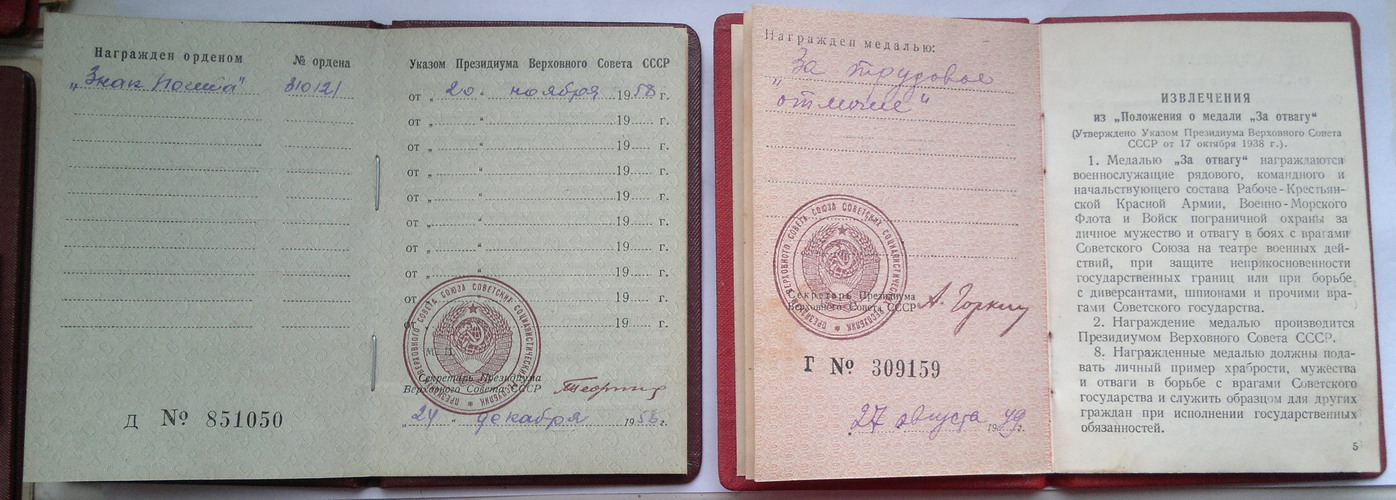 Награжден орденом
№ ордена
„Знак Почета"
310121
Указом Президиума Верховного Совета СССР
от „ 20 " ноября 1958 г.
от „ " 19 г.
от „ " 19 г.
от „ " 19 г.
от „ " 19 г.
от „ " 19 г.
от „ " 19 г.
от „ " 19 г.
от 19 г.
от 19 г.
ПРЕЗИДИУМ ВЕРХОВНОГО СОВЕТА СОЮЗА СОВЕТСКИХ СОЦИАЛИСТИЧЕСКИХ РЕСПУБЛИК
М. П.
Секретарь Президиума
Верховного Совета СССР
„24 " декабря 1958 г.
Д № 851050
Награжден медалью:
„За трудовое
отличие"
ПРЕЗИДИУМ ВЕРХОВНОГО СОВЕТА СОЮЗА СОВЕТСКИХ СОЦИАЛИСТИЧЕСКИХ РЕСПУБЛИК
Секретарь Президиума
Верховного Совета СССР
А. Горкин
Г № 309159
„27 августа 1949 г.
ИЗВЛЕЧЕНИЯ
из „Положения о медали „За отвагу"
(Утверждено Указом Президиума Верховного Совета
СССР от 17 октября 1938 г.).
1. Медалью „За отвагу" награждаются
военнослужащие рядового, командного и
начальствующего состава Рабоче-Крестьян-
ской Красной Армии, Военно-Морского
Флота и Войск пограничной охраны за
личное мужество и отвагу в боях с врагами
Советского Союза на театре военных дей-
ствий, при защите неприкосновенности
государственных границ или при борьбе
с диверсантами, шпионами и прочими вра-
гами Советского государства.
2. Награждение медалью производится
Президиумом Верховного Совета СССР.
8. Награжденные медалью должны пода-
вать личный пример храбрости, мужества
и отваги в борьбе с врагами Советского
государства и служить образцом для других
граждан при исполнении государственных
обязанностей.
5